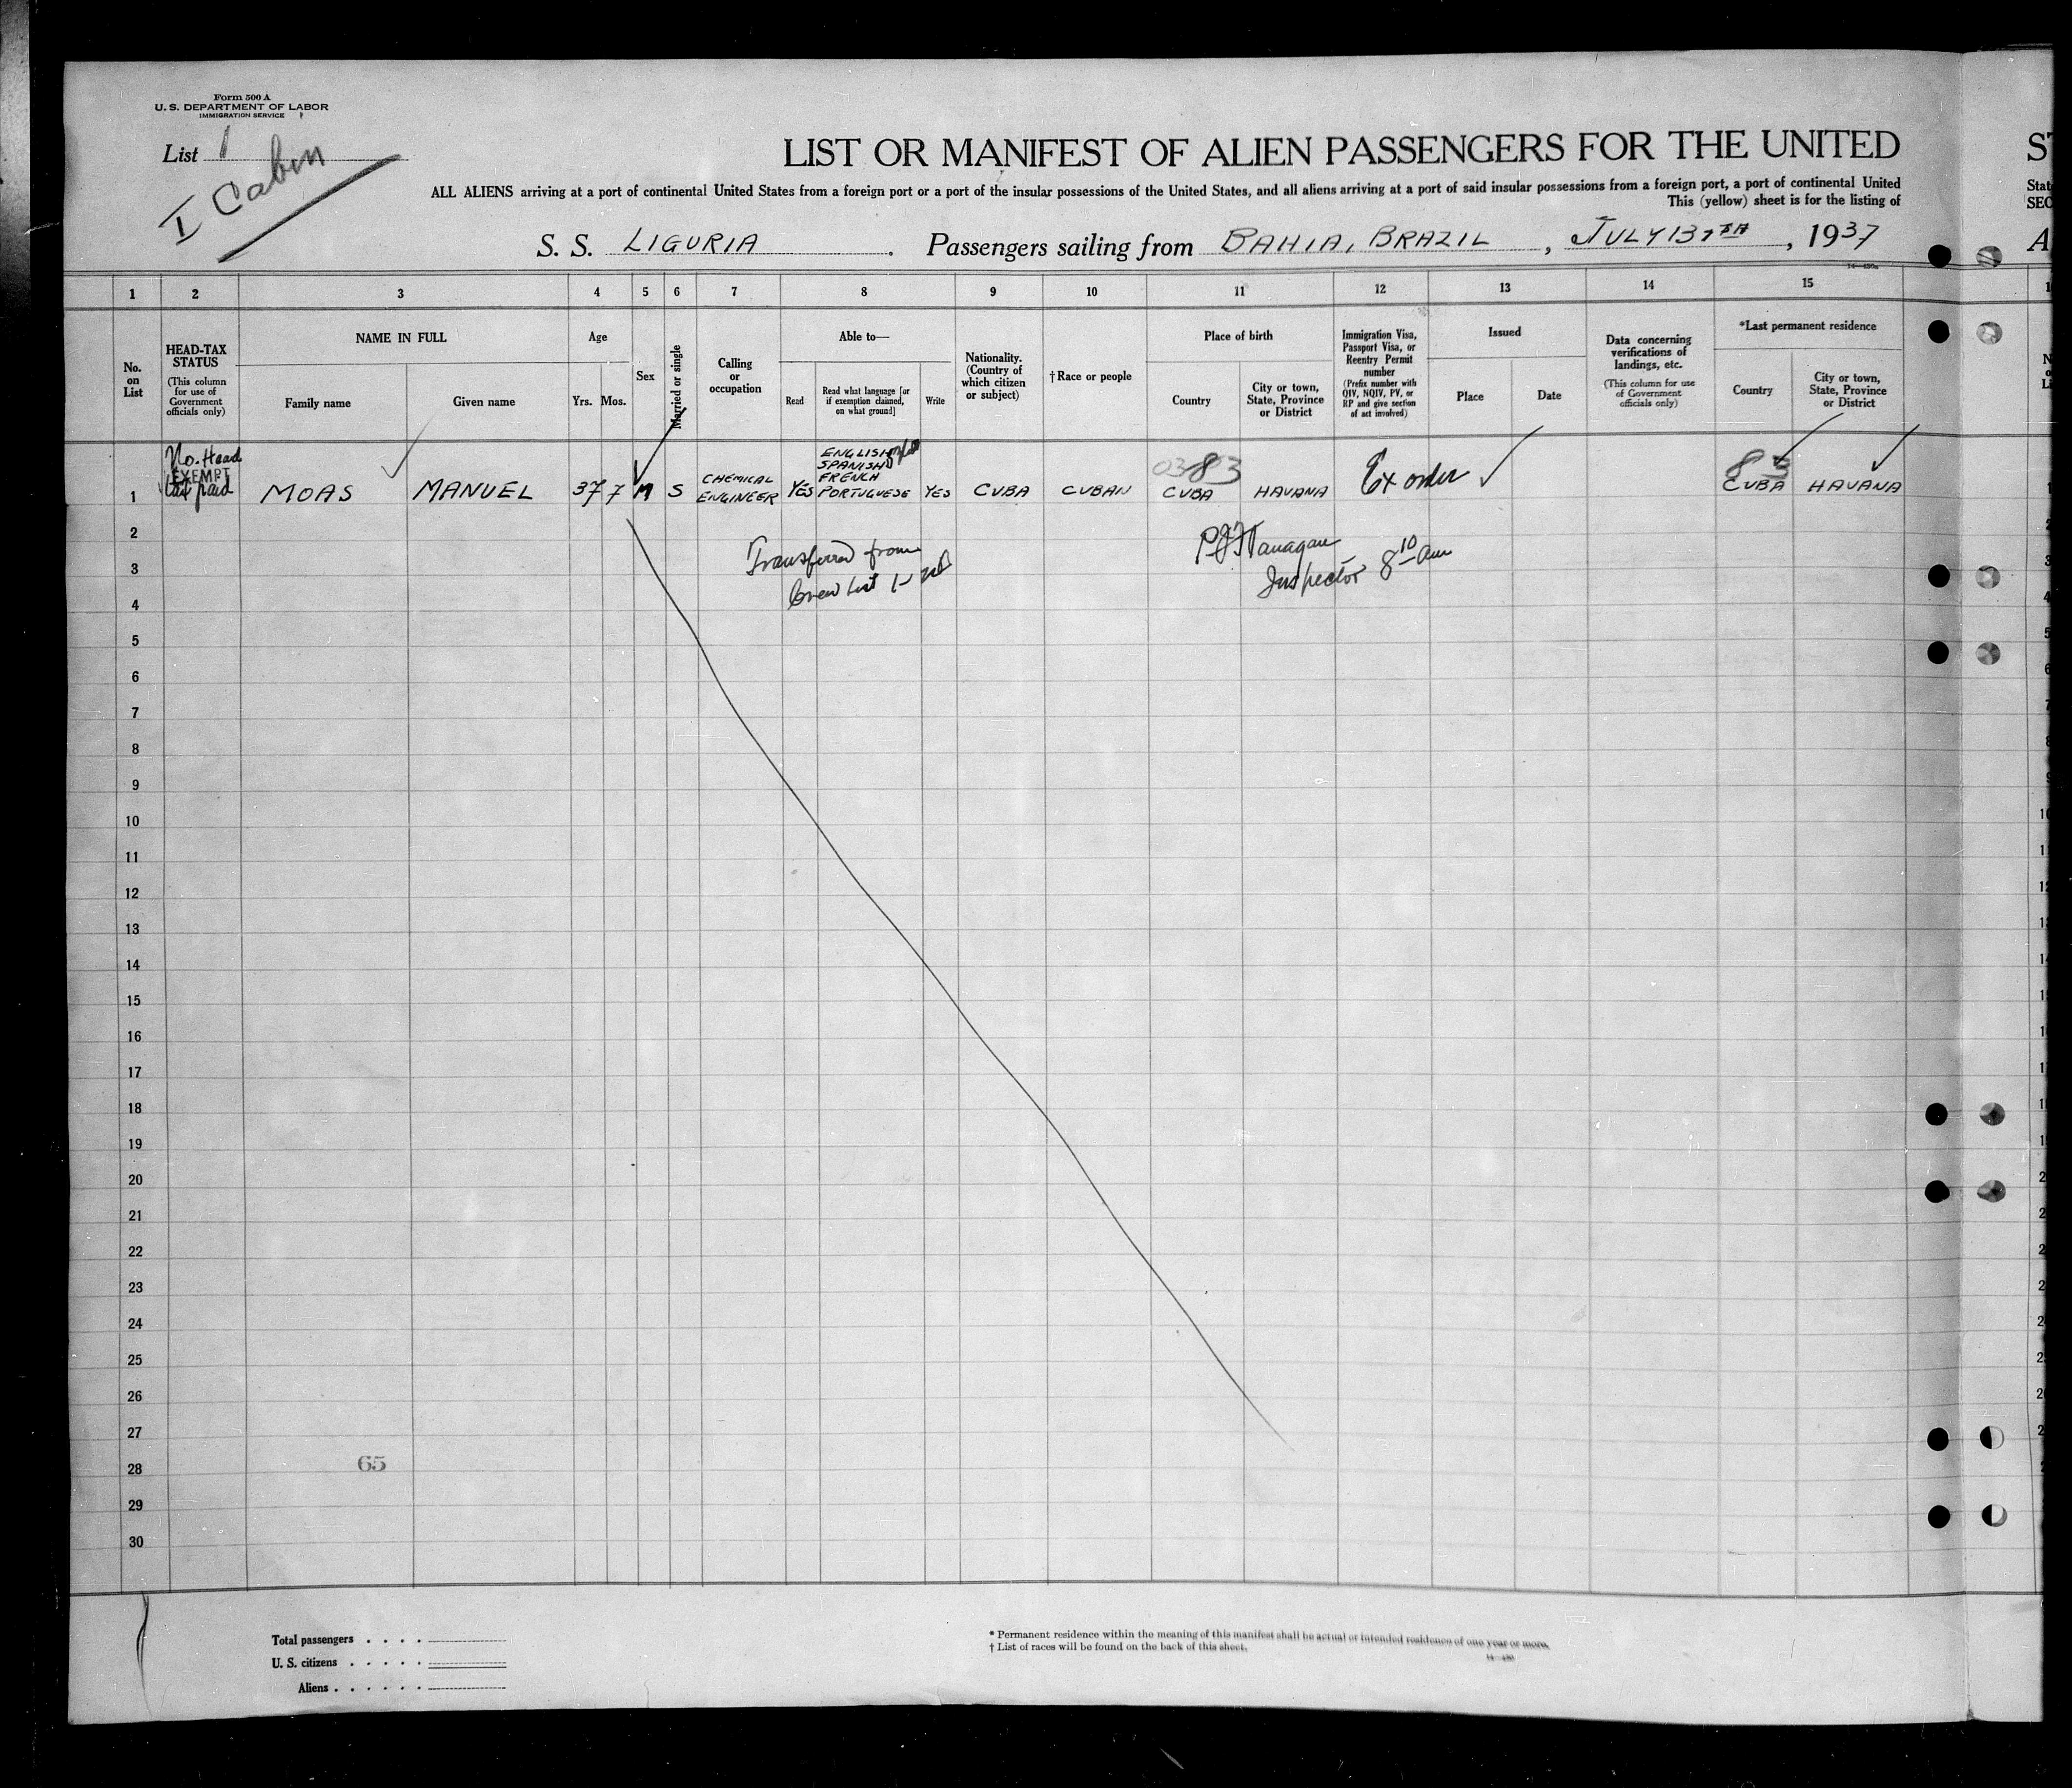 Form 500 A
U. S. DEPARTMENT OF LABOR
IMMIGRATION SERVICE
List 1
I Cabin
LIST OR MANIFEST OF ALIEN PASSENGERS FOR THE UNITED
ST
ALL ALIENS arriving at a port of continental United States from a foreign port or a port of the insular possessions of the United States, and all aliens arriving at a port of said insular possessions from a foreign port, a port of continental United
Stat
This (yellow) sheet is for the listing of
SEC
S. S. LIGURIA . Passengers sailing from BAHIA, BRAZIL , JULY 13TH , 1937
A
1 2 3 4 5 6 7 8 9 10 11 12 13 14 15
No. on List
HEAD-TAX STATUS
(This column for use of Government officials only)
NAME IN FULL
Family name
Given name
Age
Yrs. Mos.
Sex
Married or single
Calling or occupation
Able to—
Read
Read what language [or if exemption claimed, on what ground]
Write
Nationality. (Country of which citizen or subject)
†Race or people
Place of birth
Country
City or town, State, Province or District
Immigration Visa, Passport Visa, or Reentry Permit number
(Prefix number with QIV, NQIV, PV, or RP and give section of act involved)
Issued
Place
Date
Data concerning verifications of landings, etc.
(This column for use of Government officials only)
*Last permanent residence
Country
City or town, State, Province or District
No. Head
EXEMPT
tax paid
1 MOAS MANUEL 37 7 M S CHEMICAL ENGINEER YES ENGLISH SPANISH FRENCH PORTUGUESE YES CUBA CUBAN 0383 CUBA HAVANA Ex order 83 CUBA HAVANA
2
3
4
Transferred from
Crew List
Inspector 8 10 am
5
6
7
8
9
10
11
12
13
14
15
16
17
18
19
20
21
22
23
24
25
26
27
28
65
29
30
Total passengers . . . .
U. S. citizens . . . . .
Aliens . . . . . .
* Permanent residence within the meaning of this manifest shall be actual or intended residence of one year or more.
† List of races will be found on the back of this sheet.